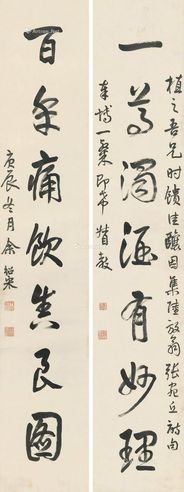 植之吾兄時饋佳釀因集陸放翁張宛丘詩句
一尊濁酒有妙理
奉博一粲即希督教
百年痛飲真良圖
庚辰冬月余紹宋